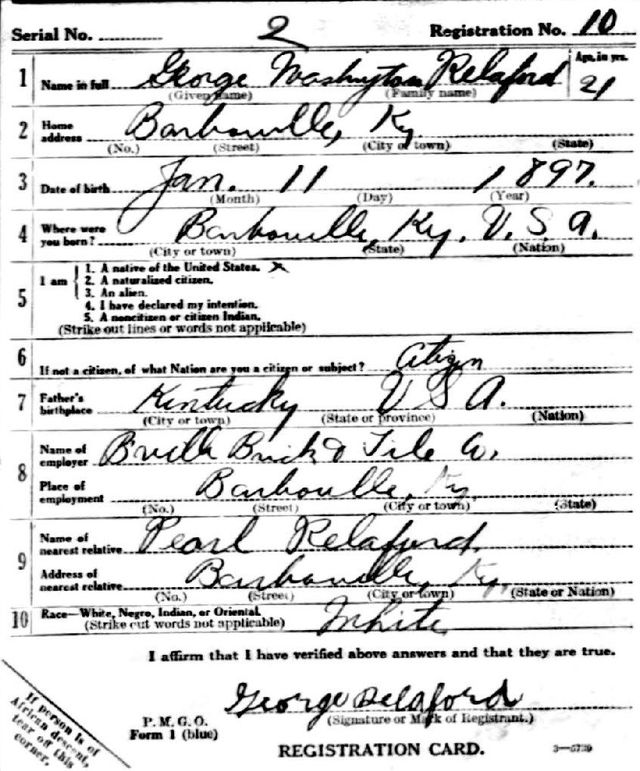 Serial No. 2 Registration No. 10
1 Name in full George Washington Relaford Age, in yrs. 21
(Given name) (Family name)
2 Home address Barbourville, Ky.
(No.) (Street) (City or town) (State)
3 Date of birth Jan. 11 1897.
(Month) (Day) (Year)
4 Where were you born? Barbourville Ky. U. S. A.
(City or town) (State) (Nation)
5 I am
1. A native of the United States. x
2. A naturalized citizen.
3. An alien.
4. I have declared my intention.
5. A noncitizen or citizen Indian.
(Strike out lines or words not applicable)
6 If not a citizen, of what Nation are you a citizen or subject? Citizen
7 Father's birthplace Kentucky U S A.
(City or town) (State or province) (Nation)
8 Name of employer B'ville Brick & Tile Co.
Place of employment Barbourville, Ky.
(No.) (Street) (City or town) (State)
9 Name of nearest relative Pearl Relaford
Address of nearest relative Barbourville, Ky,
(No.) (Street) (City or town) (State or Nation)
10 Race—White, Negro, Indian, or Oriental. White
(Strike out words not applicable)
I affirm that I have verified above answers and that they are true.
George Relaford
P. M. G. O. (Signature or Mark of Registrant.)
Form 1 (blue)
REGISTRATION CARD. 3—5739
If person is of
African descent,
tear off this
corner.